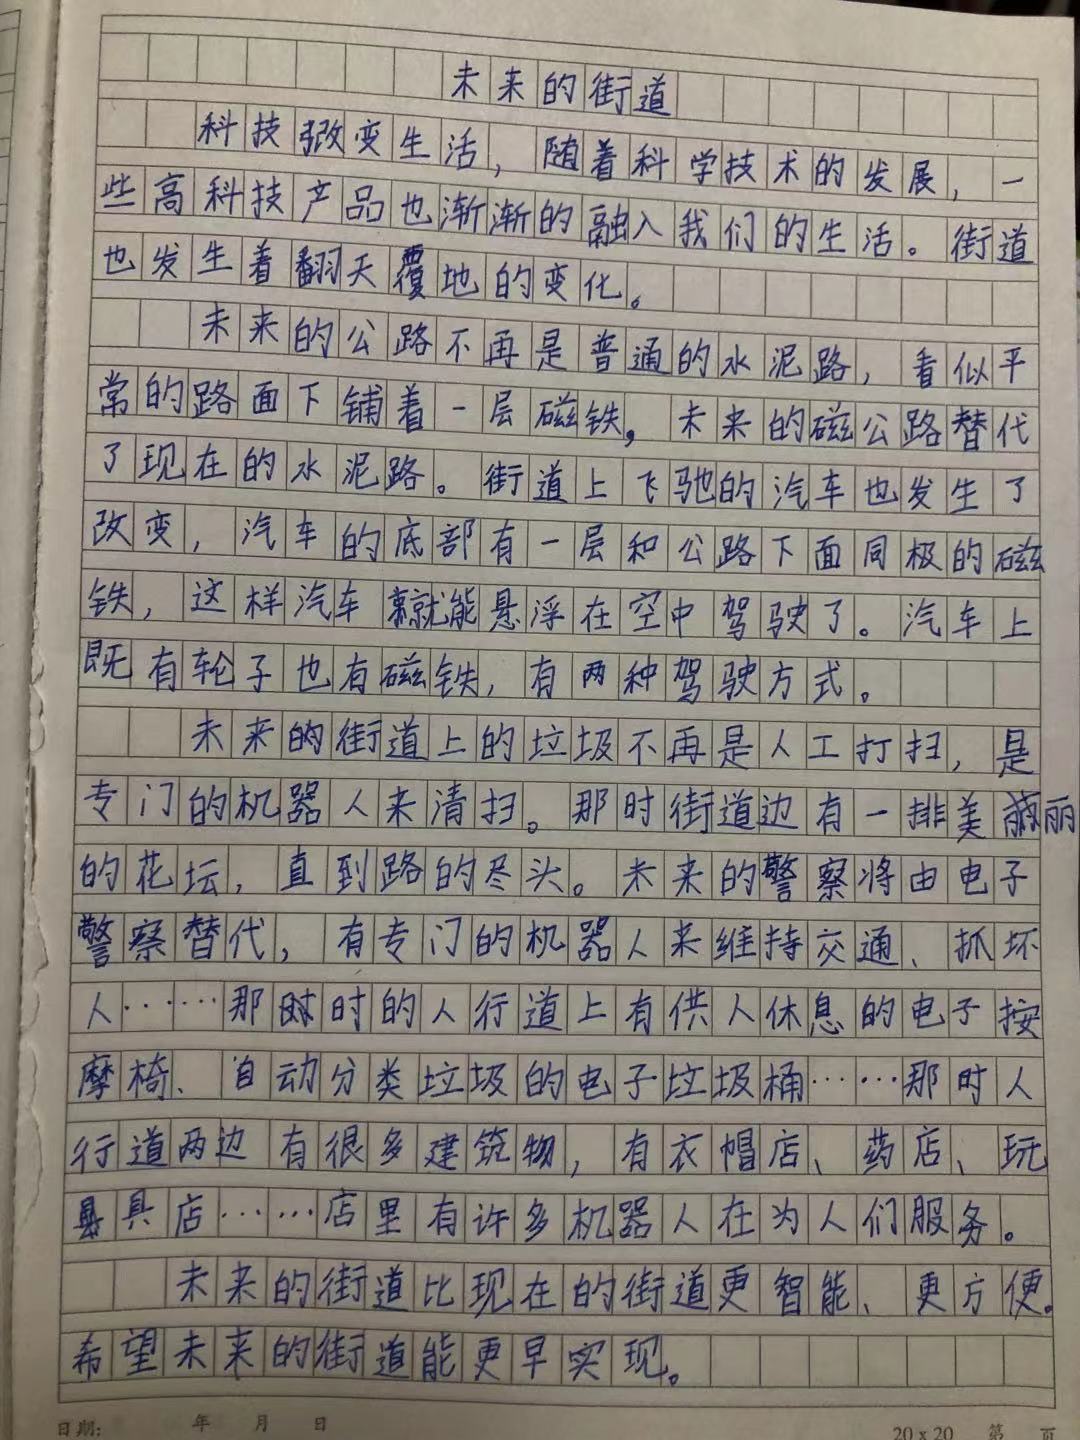 未来的街道
科技改变生活，随着科学技术的发展，一
些高科技产品也渐渐的融入我们的生活。街道
也发生着翻天覆地的变化。
未来的公路不再是普通的水泥路，看似平
常的路面下铺着一层磁铁，未来的磁公路替代
了现在的水泥路。街道上飞驰的汽车也发生了
改变，汽车的底部有一层和公路下面同极的磁
铁，这样汽车就能悬浮在空中驾驶了。汽车上
既有轮子也有磁铁，有两种驾驶方式。
未来的街道上的垃圾不再是人工打扫，是
专门的机器人来清扫。那时街道边有一排美丽
的花坛，直到路的尽头。未来的警察将由电子
警察替代，有专门的机器人来维持交通、抓坏
人……那时的人行道上有供人休息的电子按
摩椅、自动分类垃圾的电子垃圾桶……那时人
行道两边有很多建筑物，有衣帽店、药店、玩
具店……店里有许多机器人在为人们服务。
未来的街道比现在的街道更智能、更方便。
希望未来的街道能更早实现。
日期: 年 月 日 20×20 第 页